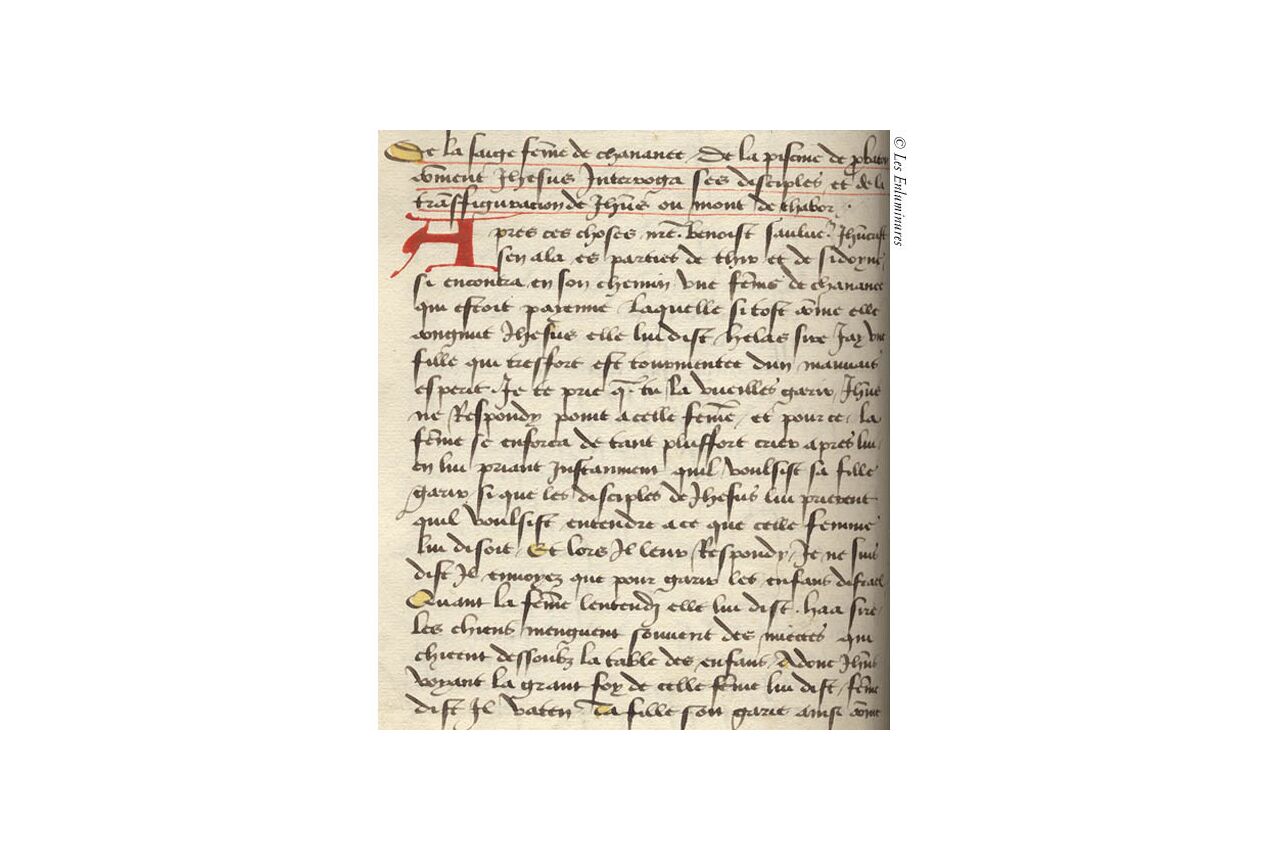 De la saige fẽme de chananee . De la piscine de
cõment Jhesus Interroga ses disciples et de la
trãsfiguracion de Jhũs ou mont de thabor .
Apres ces choses nr̃e . benoist sauluer̃ Jhũcrist
sen ala es parties de thir et de sidoyne
si encontra en son chemin vne fẽme de chananee
qui estoit payenne laquelle si tost cõme elle
congnut Jhesus elle lui dist helas sire Jay vne
fille qui tresfort est tourmentee dun mauuais
esperit . Je te prie q̃ tu la vueilles garir , Jhũs
ne Respondy point a celle fem̃e , et pource la
fẽme se enforca de tant plusfort crier apres lui ,
en lui priant Instanment quil voulsist sa fille
garir si que les disciples de Jhesus lui prierent
quil voulsist entendre a ce que celle femme
lui disoit , Et lors Il leur Respondy , Je ne suis
dist Il enuoyez que pour garir les enfans disrael
Quant la fẽme lentendy elle lui dist . haa sire
les chiens menguent souuent des miectes qui
chieent dessoubz la table des enfans , Adonc Jhũs
voyant la grant foy de celle fẽme lui dist , fẽme
dist Il vaten ta fille soit garie ainsi cõme
© Les Enluminures